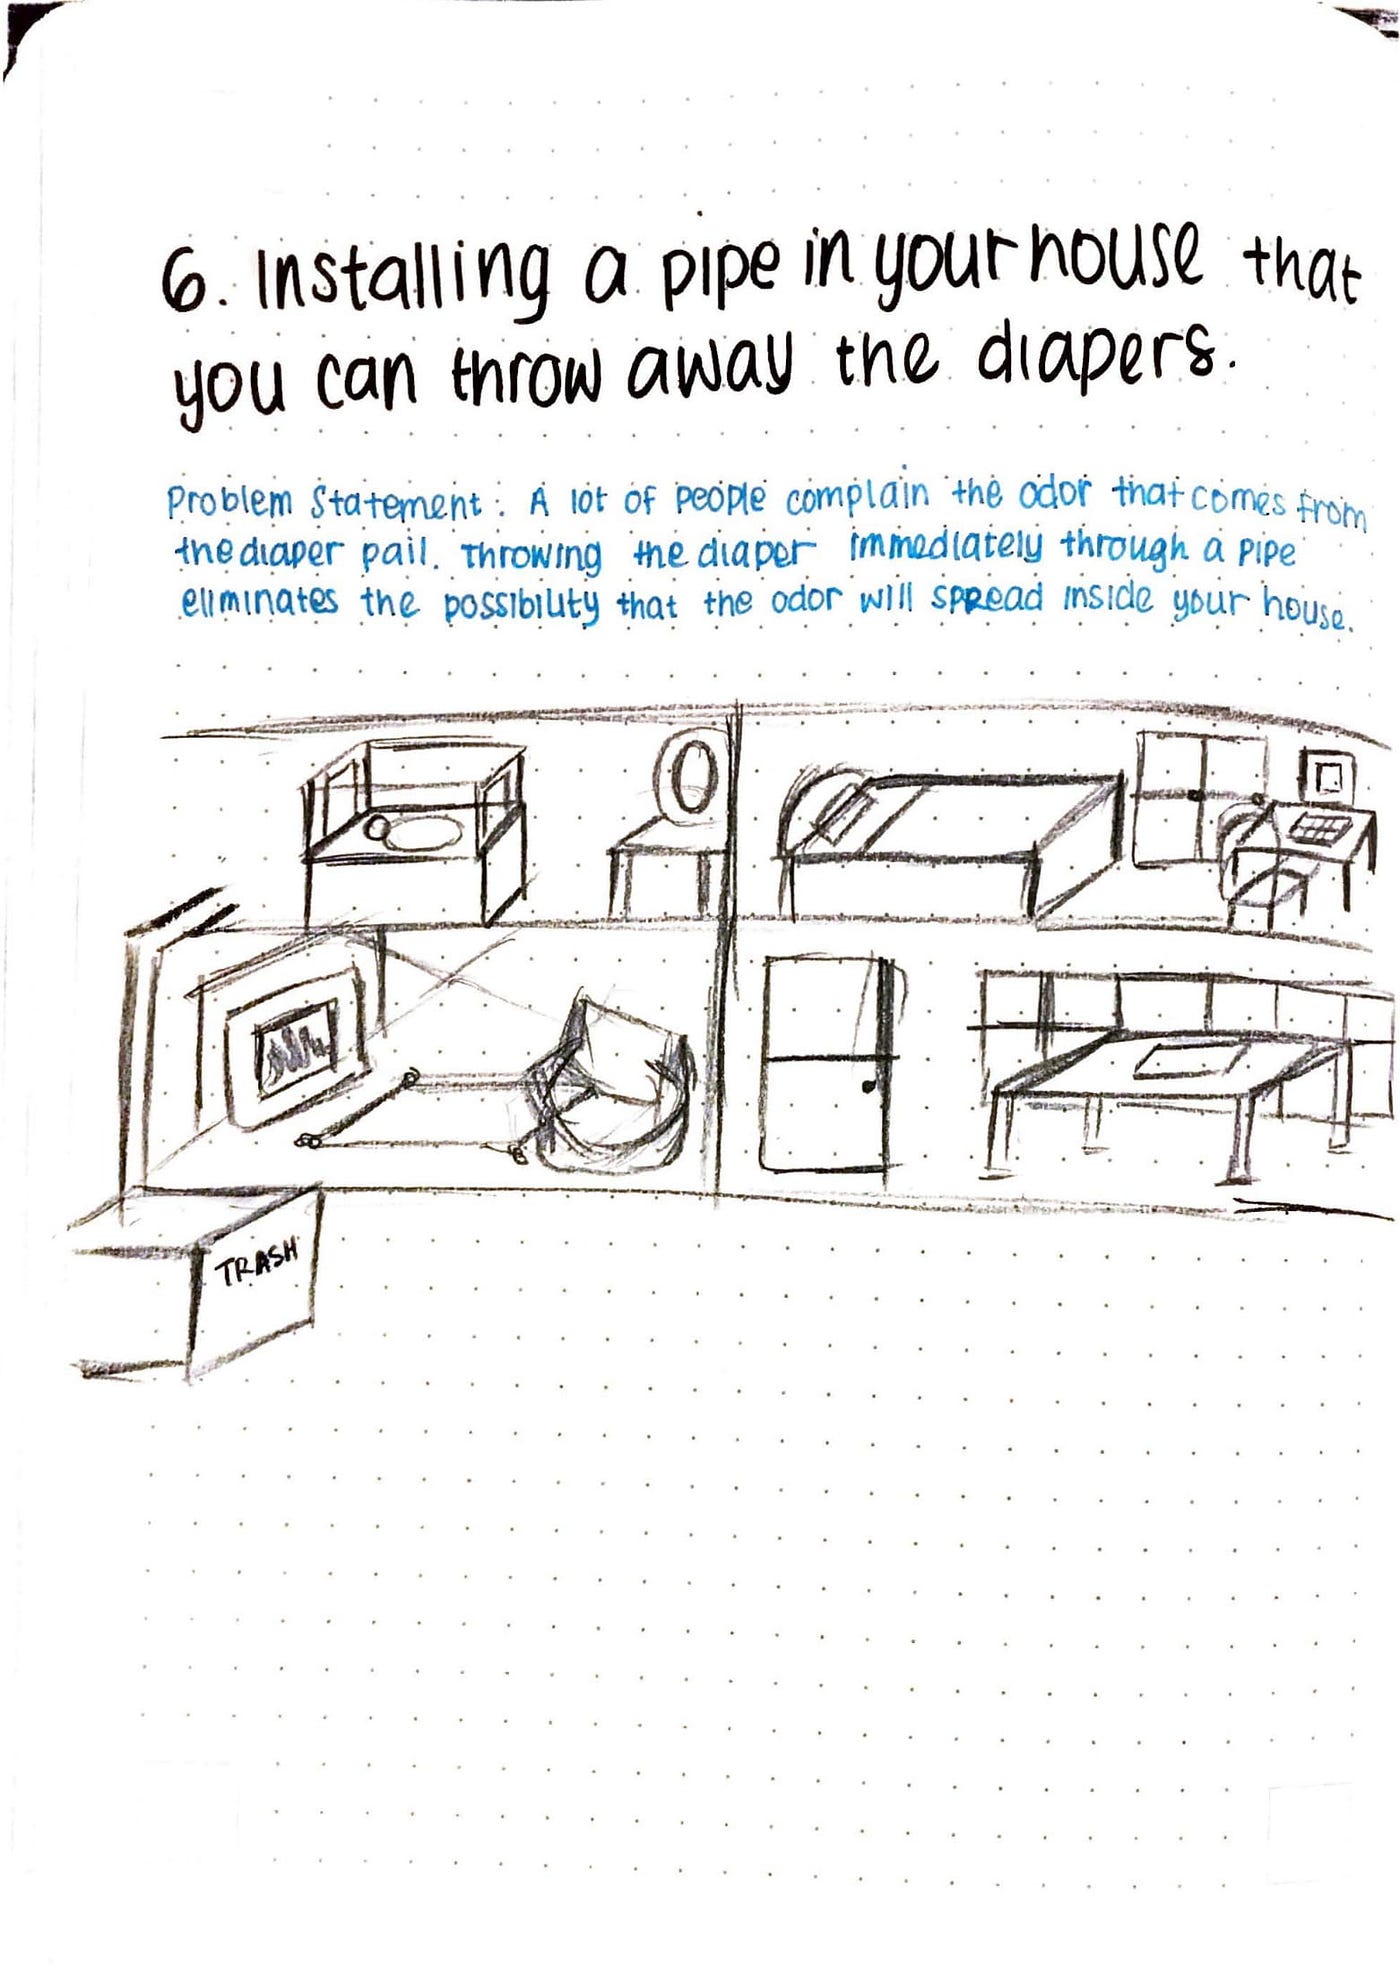 6. Installing a pipe in your house that
you can throw away the diapers.
Problem Statement: A lot of people complain the odor that comes from
the diaper pail. Throwing the diaper immediately through a pipe
eliminates the possibility that the odor will spread inside your house.
TRASH